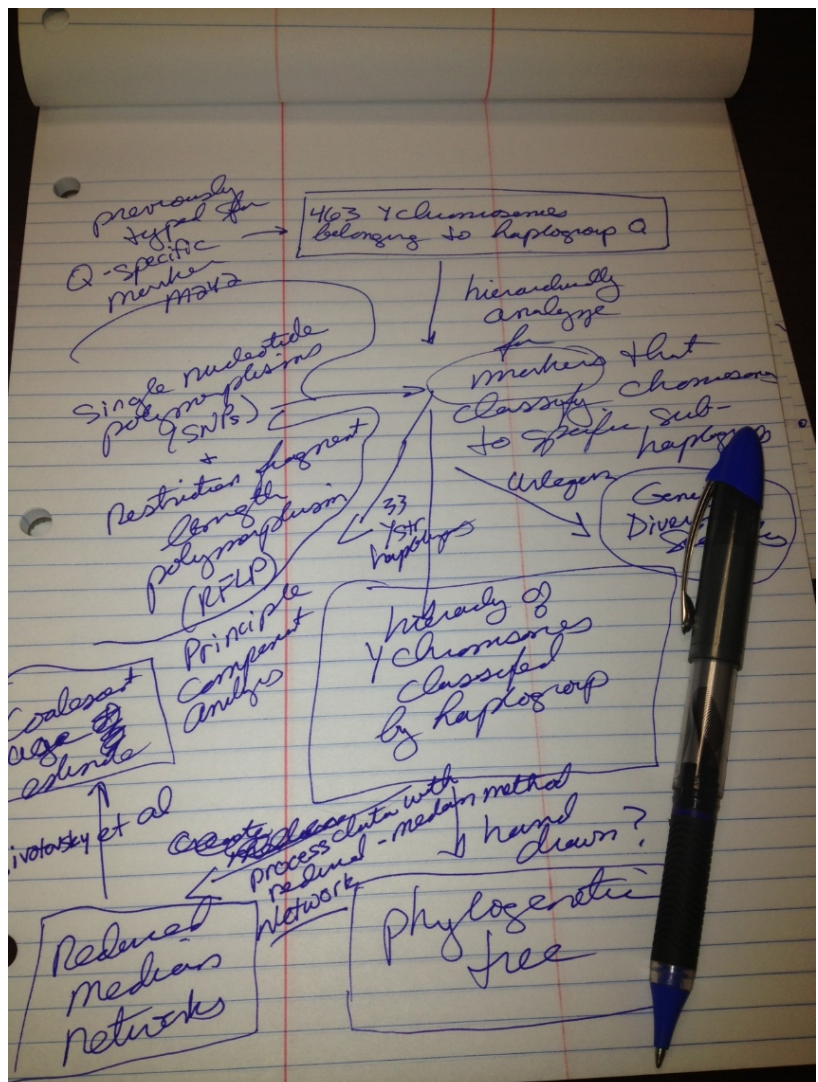 previously
typed for
Q-specific
marker
M242
463 Y chromosomes
belonging to haplogroup Q
hierarchically
analyze
for
markers that
classify chomosomes
to specific sub-
haplogroups
Single nucleotide
polymorphisms
(SNPs)
+
Restriction fragment
length
polymorphism
(RFLP)
33
YSTR
haplotypes
Arlequin
Diver
Principle
component
analysis
hierarchy of
Y chromosomes
classified
by haplogroup
Coalescent
age
estimate
ivotovsky et al
create
process data with
reduced-median method
Network
hand
drawn?
Reduced
median
networks
phylogenetic
tree